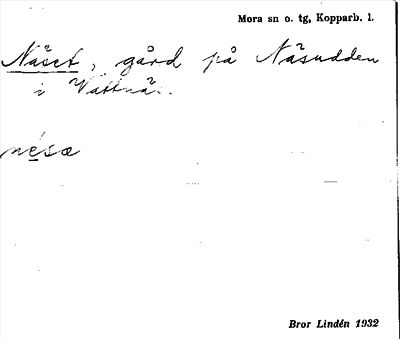 Mora sn o. tg, Kopparb. l.
Näset, gård på Näsudden
i Vattnäs.
nésæ
Bror Lindén 1932